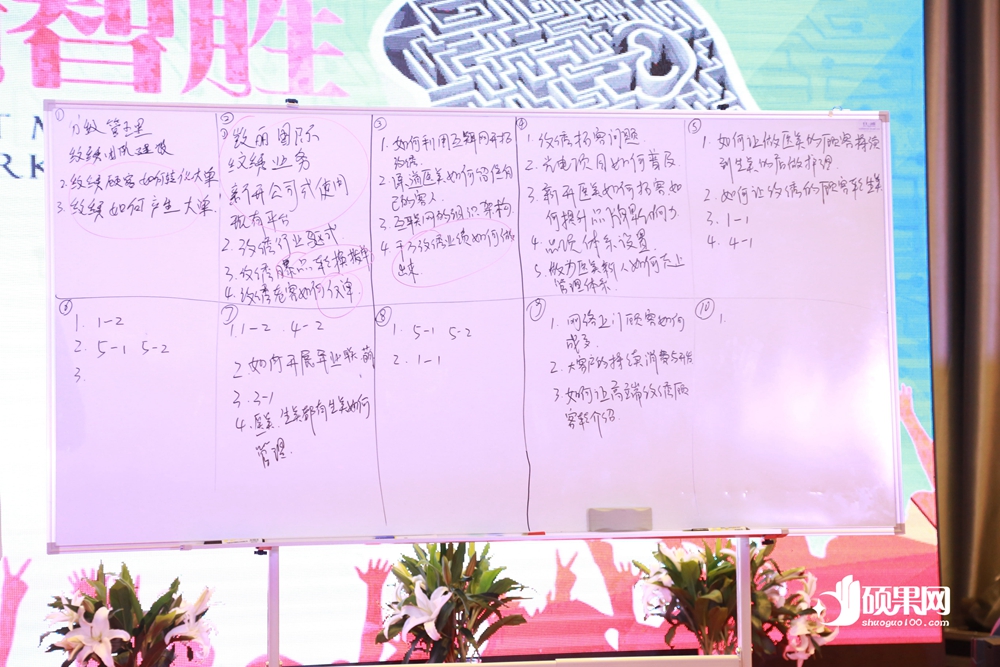 智胜
①
分级管理
纹绣团队建设
2.纹绣顾客如何转化大单
3.纹绣如何产生大单.
②
①致丽国际
纹绣业务
新开公司或使用
现有平台
2.纹绣行业
3.纹绣
4.纹绣老客如何
③
1.如何利用互联网开拓
2.课消医美如何留住自
己的客人.
3.互联网的组织架构.
4.千万纹绣业绩如何做
出来.
④
1.纹绣拓客问题
2.光电次目如何普及
3.新开医美如何拓客如
何提升品牌影响力
4.品项体系设置.
5.做为医美料人如何
管理体系.
⑤
1.如何让做医美的顾客接受
到生美的后做护理
2.如何让纹绣的顾客轮生美
3. 1-1
4. 4-1
⑥
1. 1-2
2. 5-1 5-2
3.
⑦
1. 1-2 4-2
2.如何开展异业联萌
3. 3-1
4.医美.生美都有生美如何
管理.
⑧
1. 5-1 5-2
2. 1-1
⑨
1.网络上门顾客如何
成交
2.大客户的持续消费与开发
3.如何让高端纹绣顾
客轮介绍.
⑩
1.
硕果网
shuoguo100.com